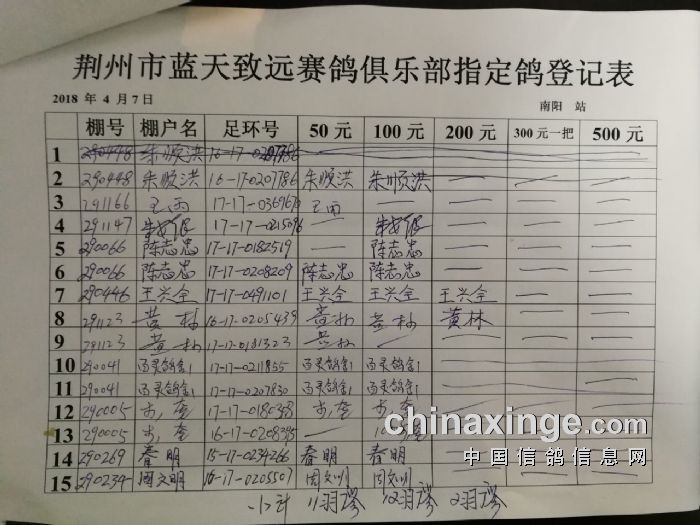 荆州市蓝天致远赛鸽俱乐部指定鸽登记表
2018 年 4 月 7 日 南阳 站
棚号 棚户名 足环号 50 元 100 元 200 元 300 元一把 500 元
1 290448 朱顺洪 16-17-0207786
2 290448 朱顺洪 16-17-0207786 朱顺洪 朱顺洪 — — —
3 291166 王雨 王雨 — — — —
4 291147 17-17-0215096 — — — —
5 290066 陈志忠 17-17-0182519 — 陈志忠 — — —
6 290066 陈志忠 17-17-0208209 陈志忠 陈志忠 — — —
7 290446 王兴全 17-17-0491101 王兴全 王兴全 王兴全 — —
8 291123 黄林 16-17-0205439 黄林 黄林 黄林 — —
9 291123 黄林 17-17-0181323 黄林 — — — —
10 290041 17-17-0211855
11 290041 17-17-0207830
12 290005 17-17-0180398
13 290005 16-17-0208395 —
14 290269 春明 15-17-0234266 春明 春明
15 290234 周文明 16-17-0205507
小计 11羽 12羽 2羽
chinaxinge.com
中国信鸽信息网